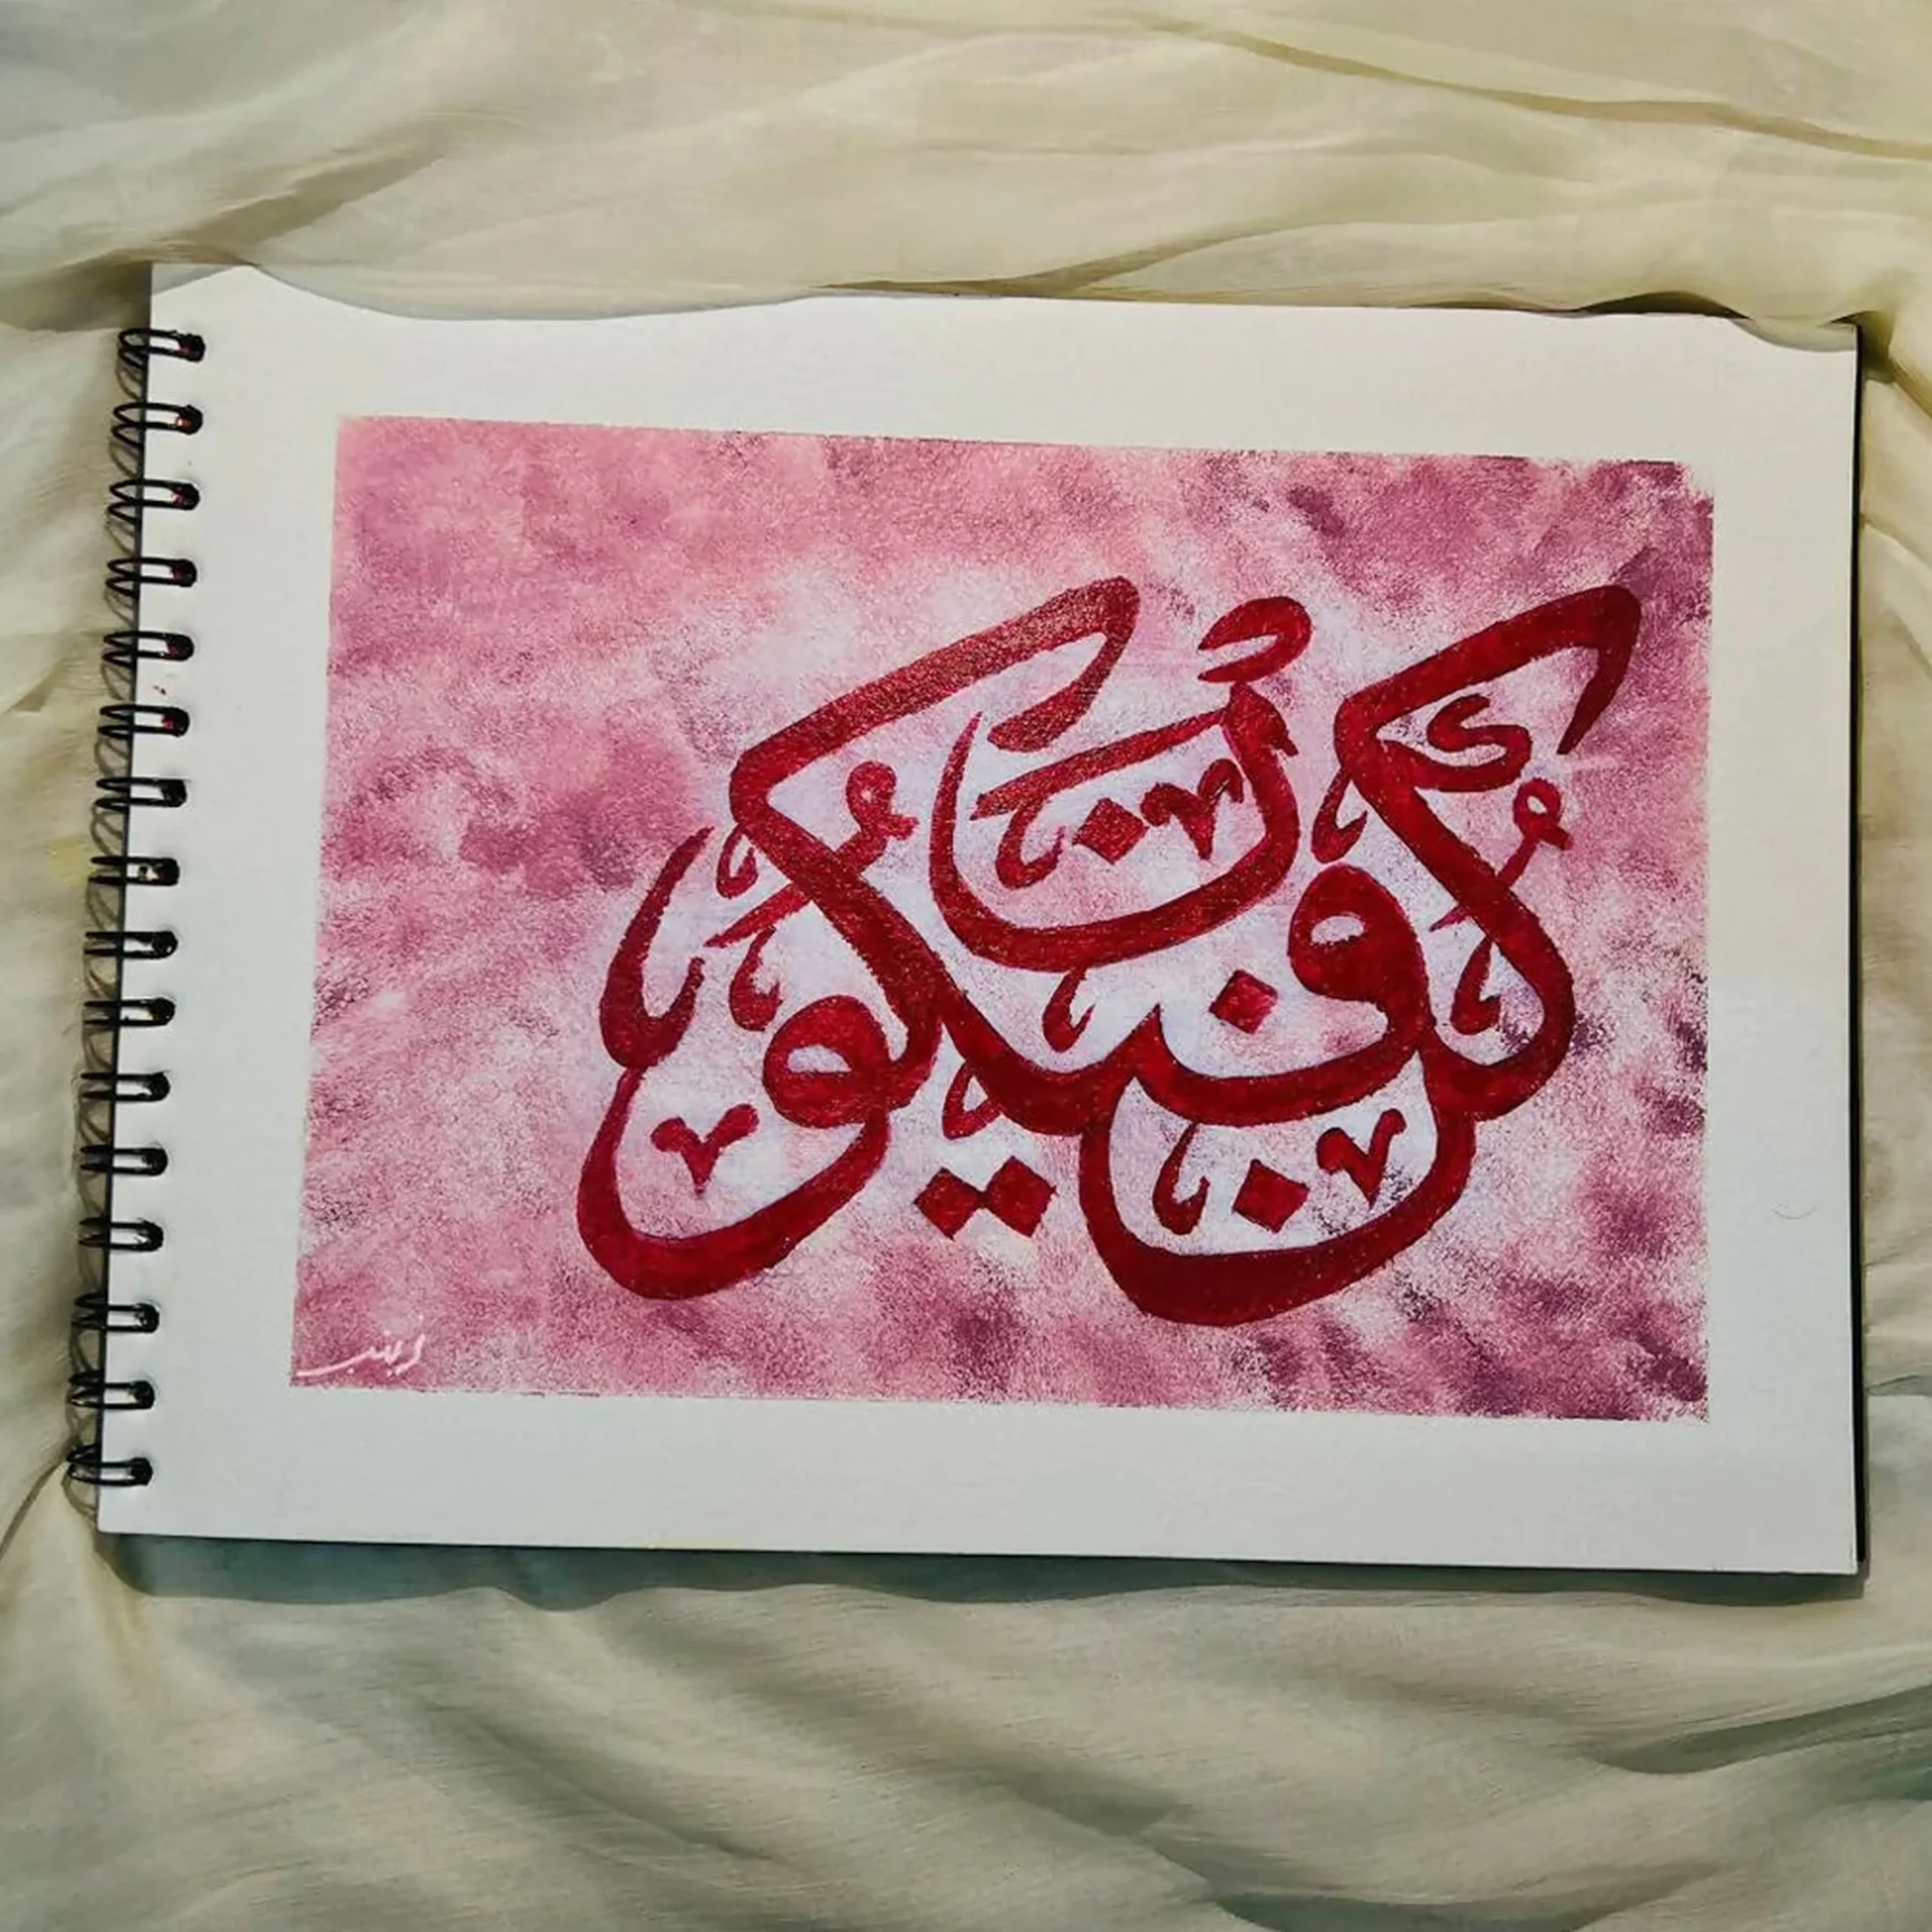 كُن فَيَكُونُ
زينب